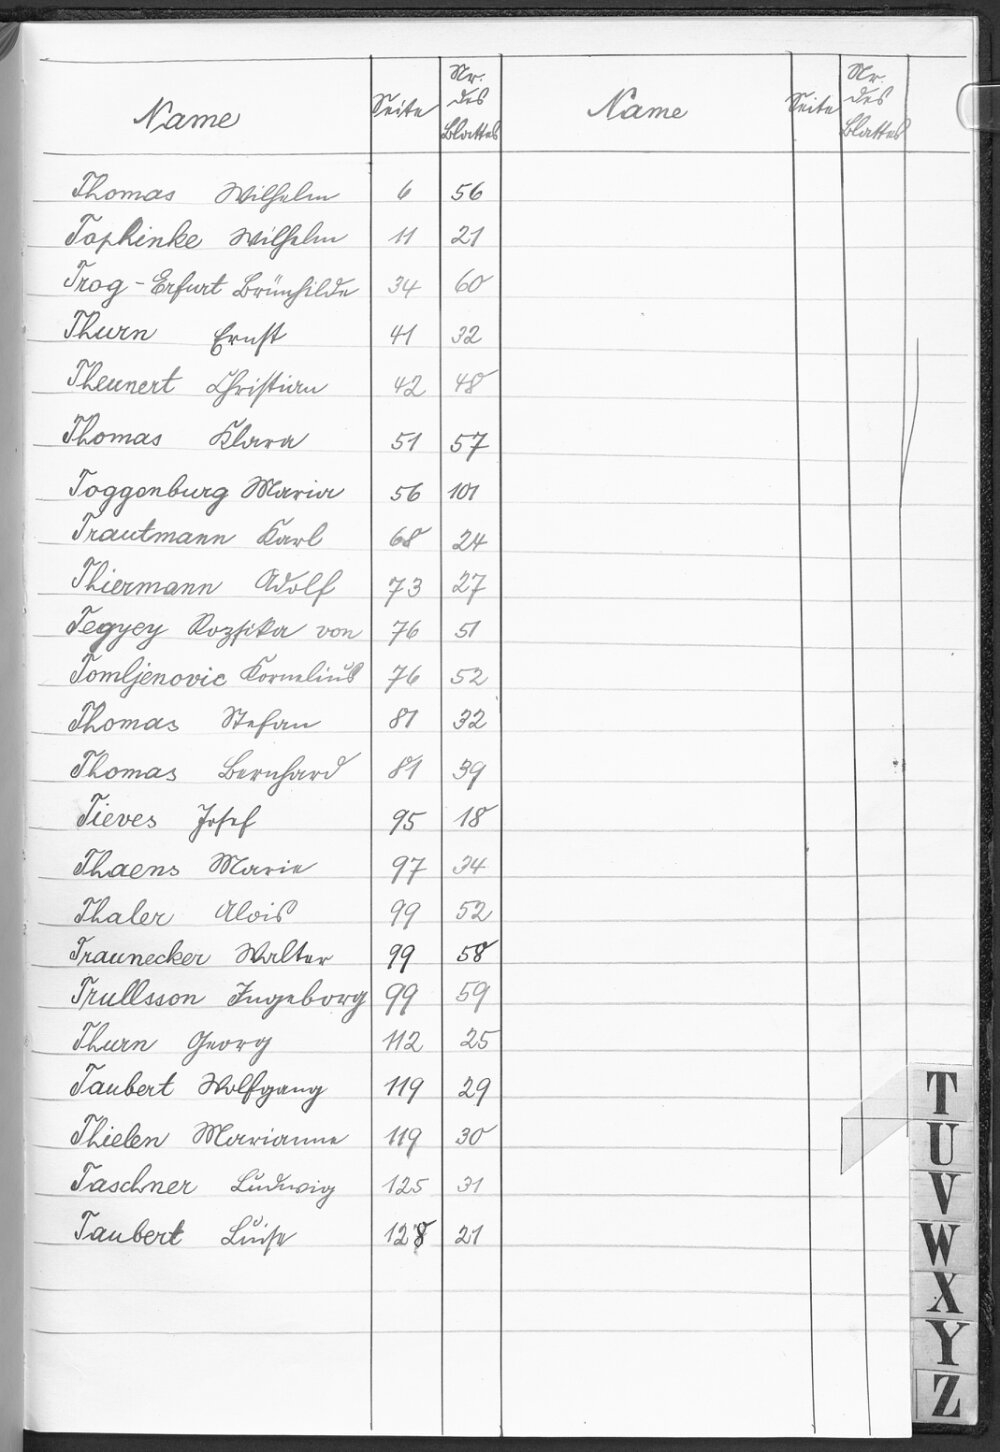 Name Seite Nr. des Blattes Name Seite Nr. des Blattes
Thomas Wilhelm 6 56
Tophinke Wilhelm 11 21
Trog-Erfurt Brünhilde 34 60
Thurn Ernst 41 32
Theunert Christian 42 48
Thomas Klara 51 57
Toggenburg Maria 56 101
Trautmann Karl 68 24
Thiermann Adolf 73 27
Tegyey Rozsika von 76 51
Tomljenovic Kornelius 76 52
Thomas Stefan 81 32
Thomas Bernhard 81 39
Tieves Josef 95 18
Thaens Marie 97 34
Thaler Alois 99 52
Traunecker Walter 99 58
Trullsson Ingeborg 99 59
Thurn Georg 112 25
Taubert Wolfgang 119 29
Thielen Marianne 119 30
Taschner Ludwig 125 31
Taubert Luise 128 21
T
U
V
W
X
Y
Z